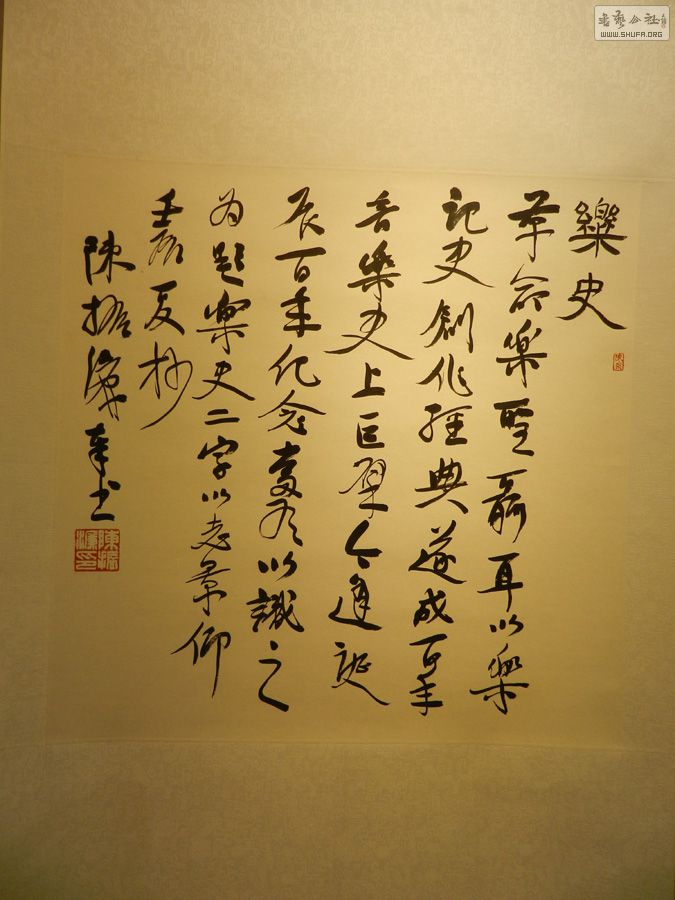 樂史
革命樂聖聶耳以樂
記史創作經典遂成百年
音樂史上巨璧今逢誕
辰百年紀念爰為以識之
为題樂史二字以志景仰
壬辰夏抄
陳振濂奉書
陳振濂印
書藝公社
WWW.SHUFA.ORG